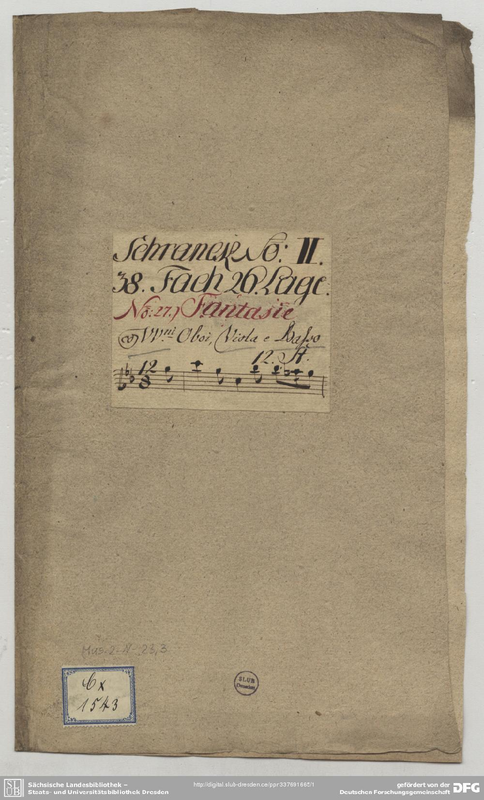 Schranck No: II.
38. Fach 26. Lage.
No: 27.) Fantasie
VVni Oboi, Viola e Basso
12. St.
12
8
Mus. 2-N-23,3
Cx
1543
SLUB
Dresden
Sächsische Landesbibliothek –
Staats- und Universitätsbibliothek Dresden
gefördert von der
Deutschen Forschungsgemeinschaft
DFG